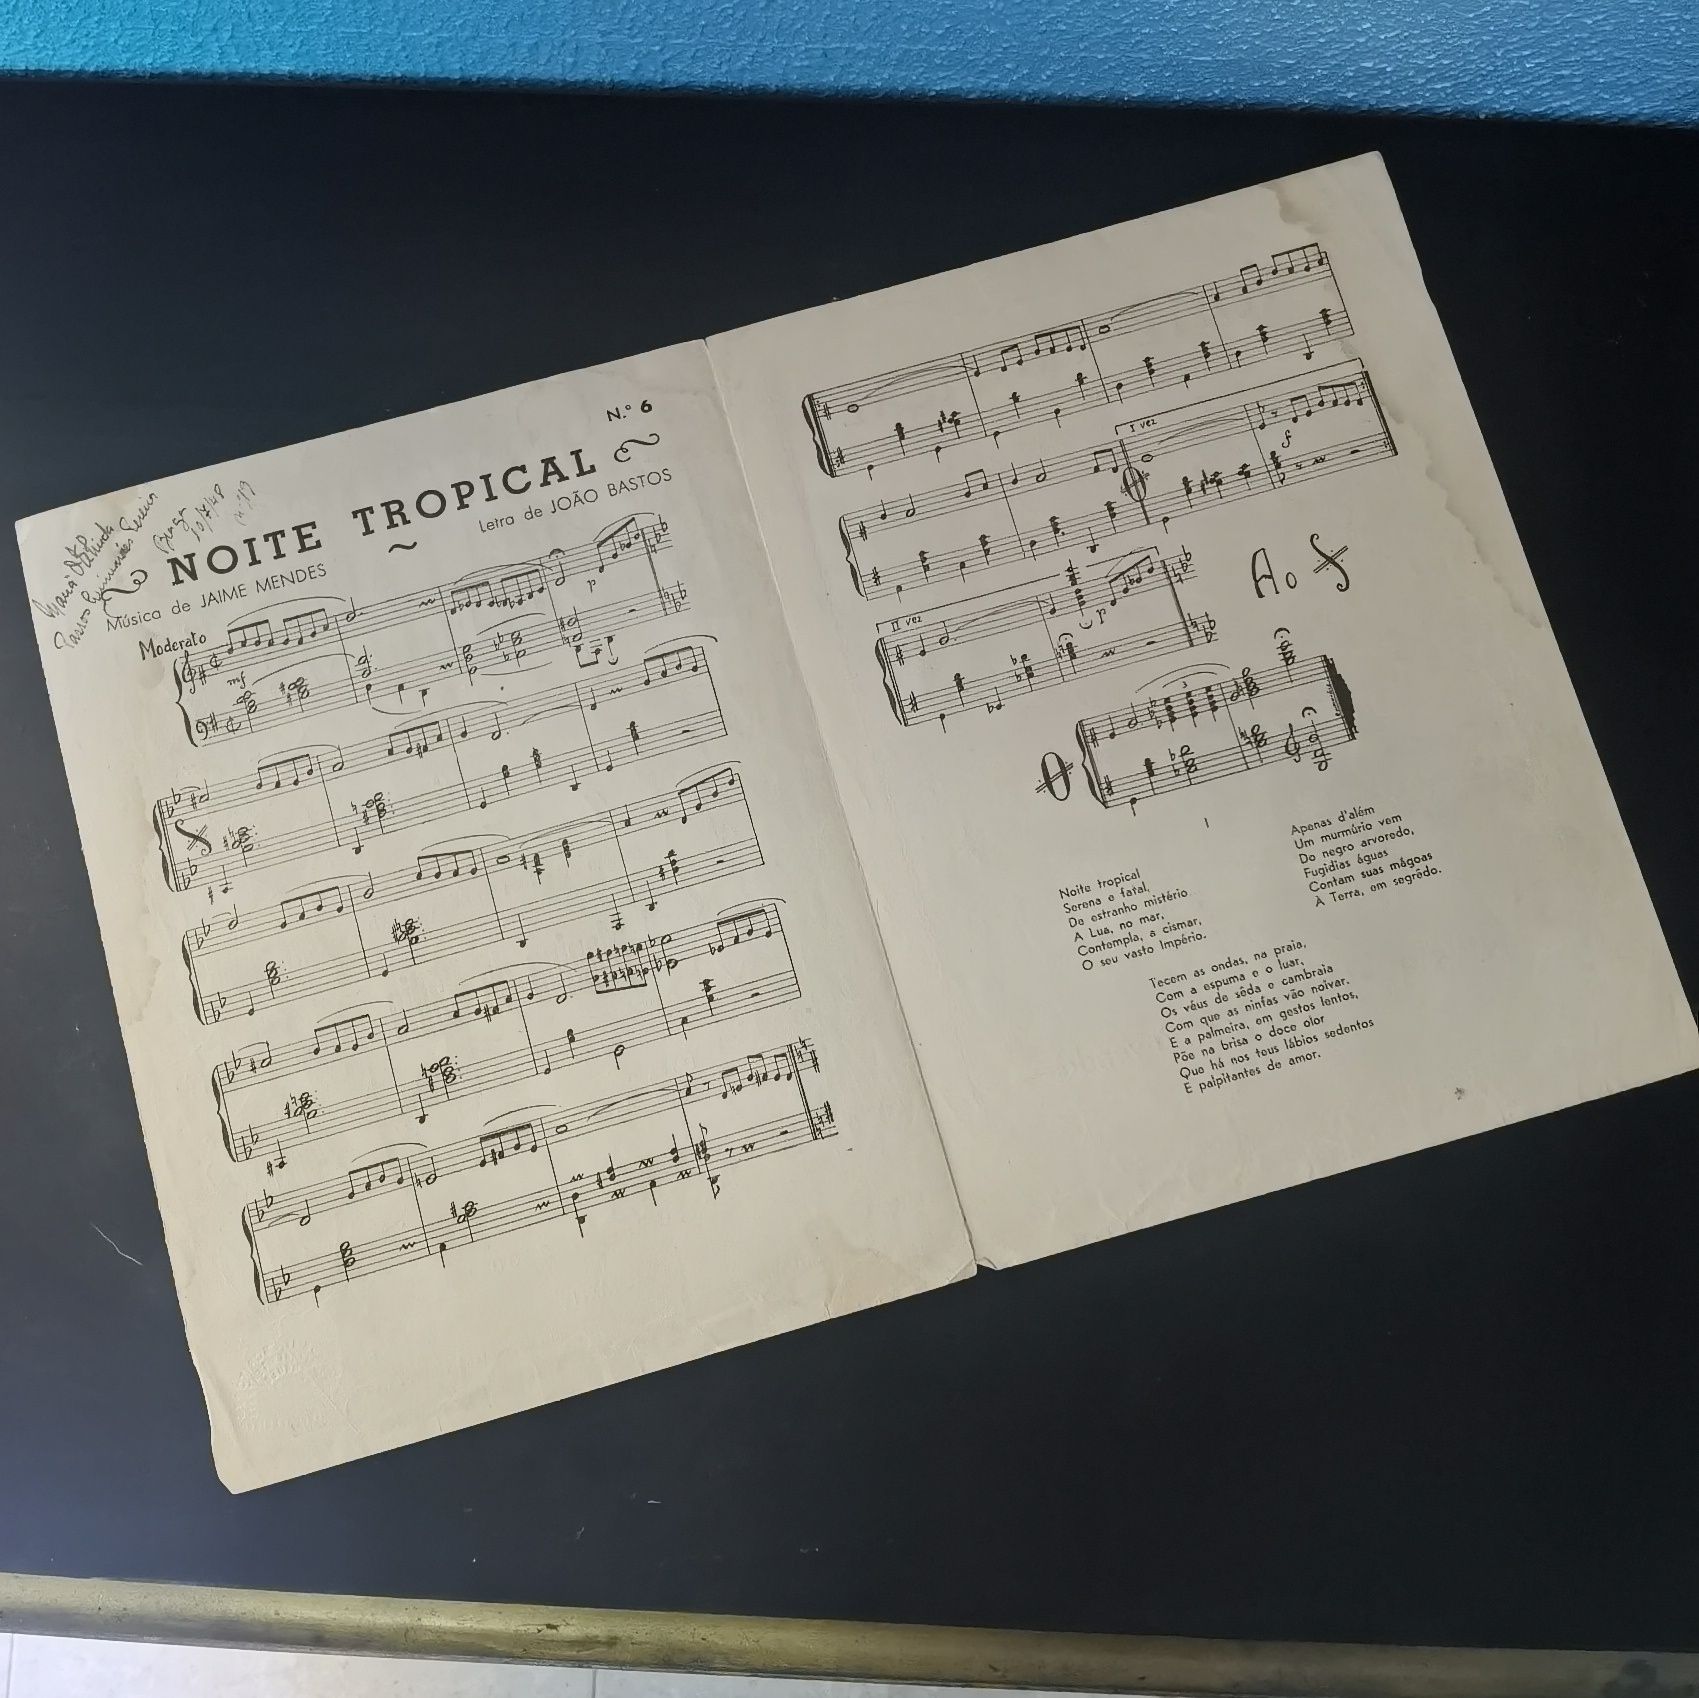 N.º 6
NOITE TROPICAL
Música de JAIME MENDES
Letra de JOÃO BASTOS
Maria
Passos Guimarães
Braga
10/7/48
Moderato
mf
p
I vez
f
II vez
p
Ao
3
I
Noite tropical
Serena e fatal,
De estranho mistério
A Lua, no mar,
Contempla, a cismar,
O seu vasto Império.
Apenas d'além
Um murmúrio vem
Do negro arvoredo,
Fugidias águas
Contam suas mágoas
A Terra, em segrêdo.
Tecem as ondas, na praia,
Com a espuma e o luar,
Os véus de sêda e cambraia
Com que as ninfas vão noivar.
E a palmeira, em gestos lentos,
Põe na brisa o doce olor
Que há nos teus lábios sedentos
E palpitantes de amor.